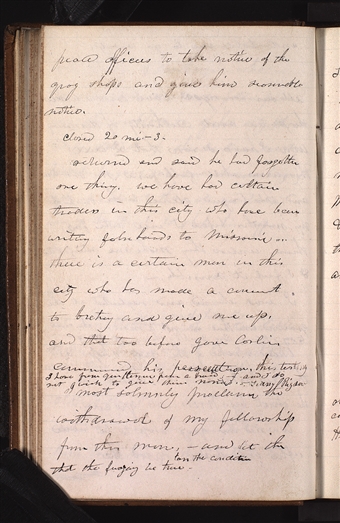 peace officers to take notice of the
grog shops and give him seasonable
notice.
closed 20 mi - 3.
returned and said he had forgotten
one thing. we have had certain
traders in this city who have been
writing falsehoods to Missouri -
there is a certain man in this
city who has made a covenant
to betray and give me up,
and that too before Gover Carlin
commenced his persecution. this testimony
I have from gentlemen from abroad and I do
not wish to give their names.
I most solemnly proclaim the
withdrawal of my fellowship
from this man, - and let the
on the condition
that the foregoing be true -